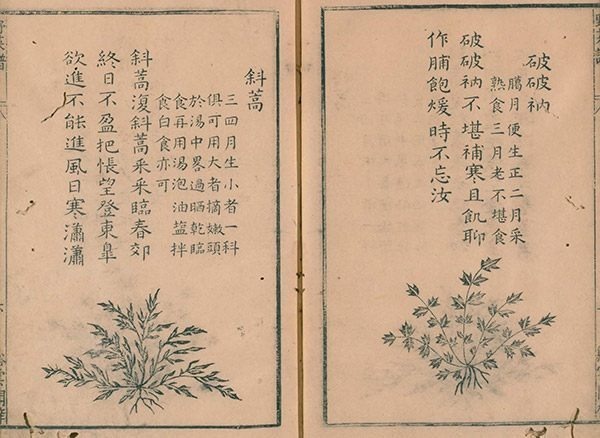 破破衲
臈月便生正二月采
熟食三月老不堪食
破破衲不堪補寒且飢聊
作脯飽煖時不忘汝
斜蒿
三四月生小者一科
俱可用大者摘嫩頭
於湯中畧過晒乾臨
食再用湯泡油塩拌
食白食亦可
斜蒿復斜蒿采采臨春郊
終日不盈把悵望登東臯
欲進不能進風日寒瀟瀟